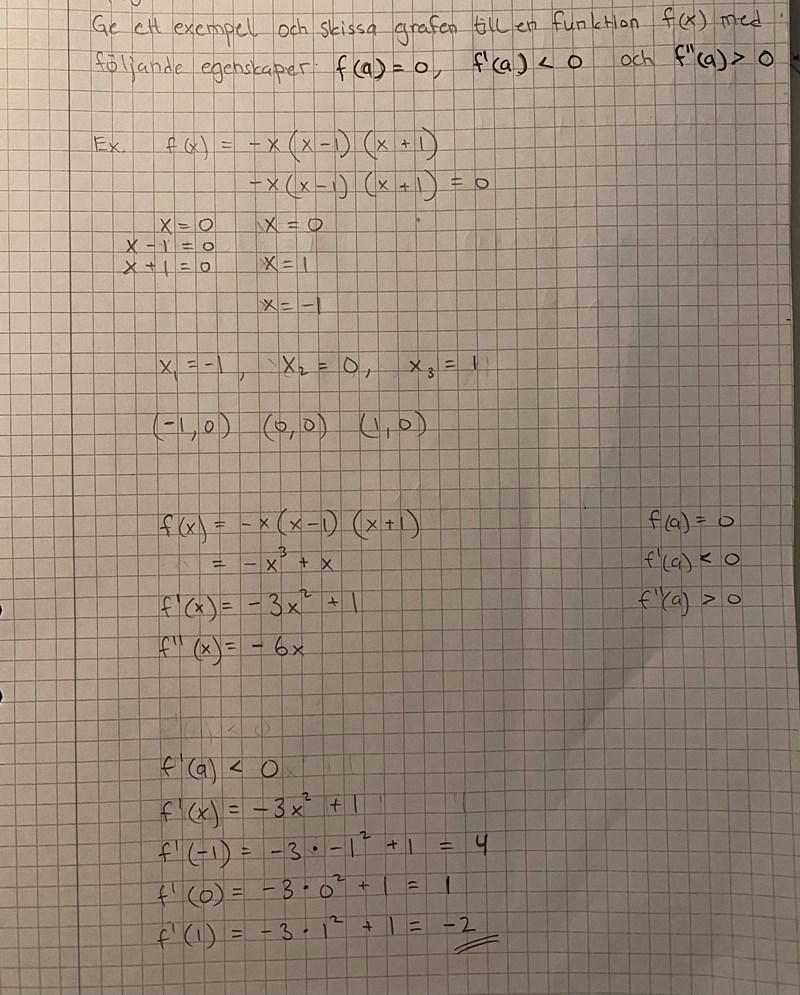 Ge ett exempel och skissa grafen till en funktion f(x) med
följande egenskaper: f(a) = 0, f'(a) < 0 och f''(a) > 0
Ex. f(x) = -x(x-1)(x+1)
-x(x-1)(x+1) = 0
x = 0 x = 0
x - 1 = 0
x + 1 = 0 x = 1
x = -1
x₁ = -1, x₂ = 0, x₃ = 1
(-1,0) (0,0) (1,0)
f(x) = -x(x-1)(x+1) f(a) = 0
= -x³ + x f'(a) < 0
f'(x) = -3x² + 1 f''(a) > 0
f''(x) = -6x
f'(a) < 0
f'(x) = -3x² + 1
f'(-1) = -3 · -1² + 1 = 4
f'(0) = -3 · 0² + 1 = 1
f'(1) = -3 · 1² + 1 = -2